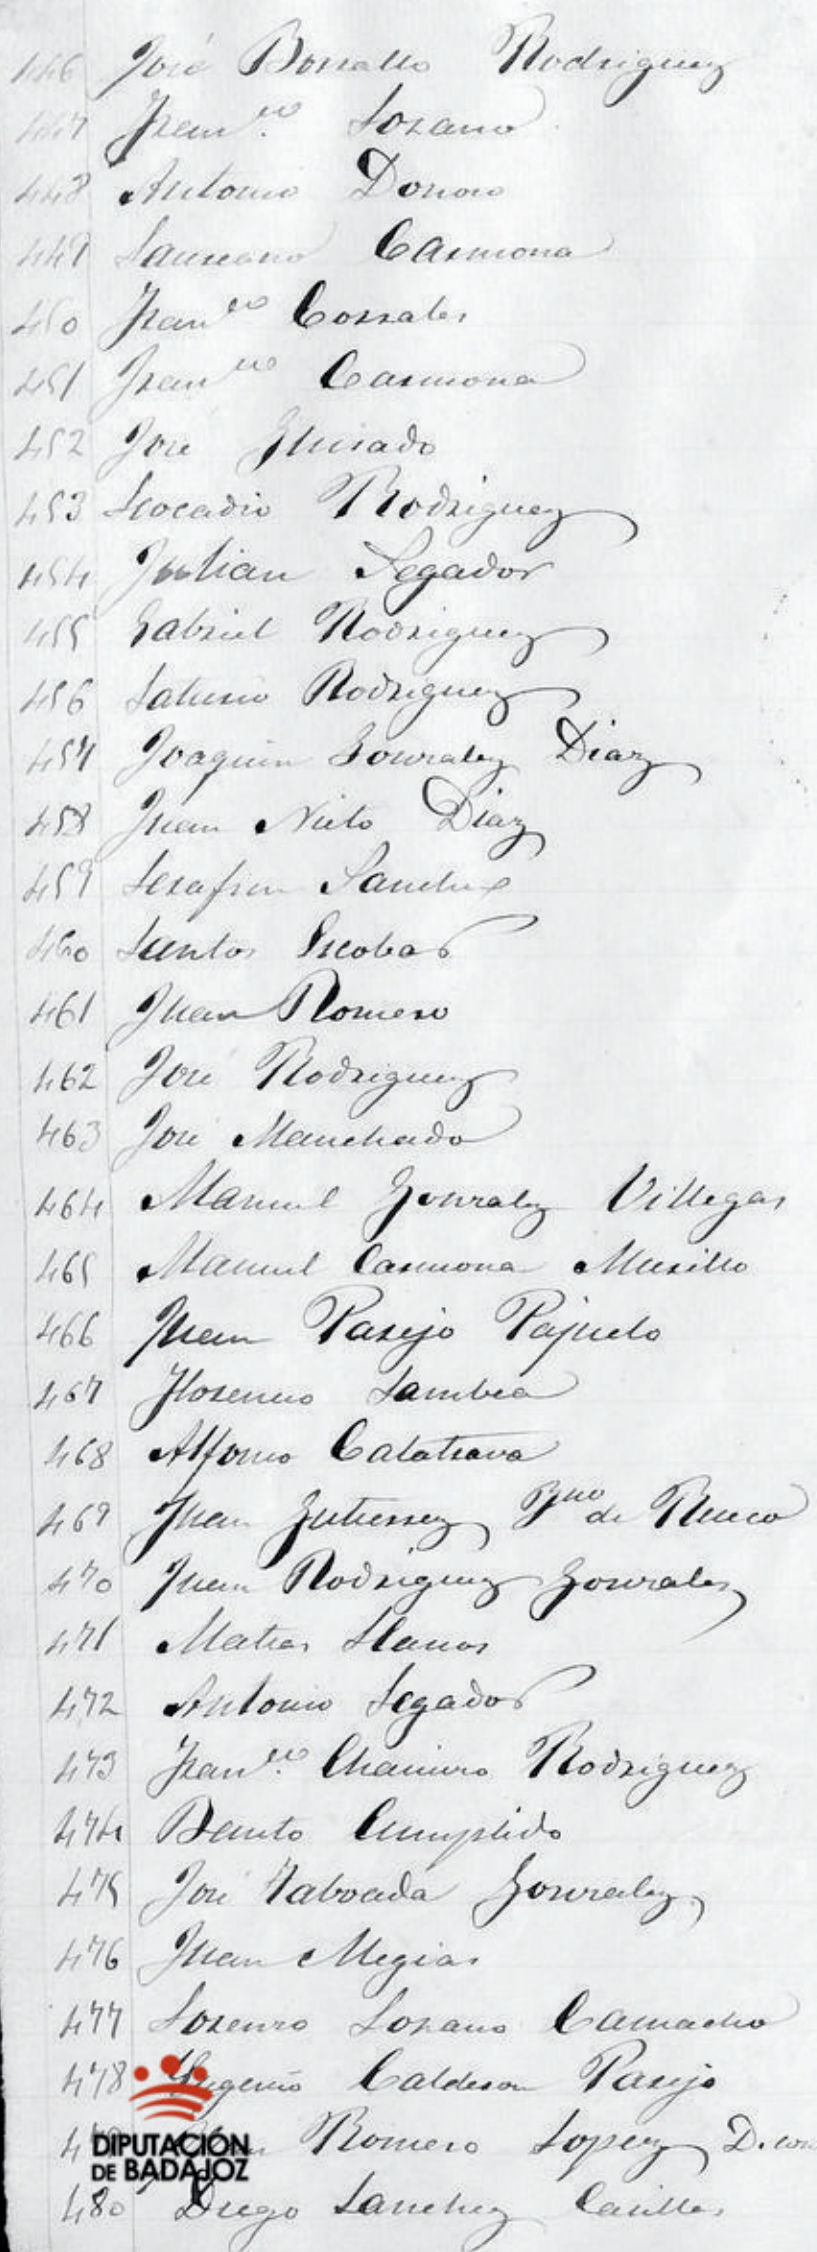 446 José Borrallo Rodriguez
447 Franco. Lozano
448 Antonio Donoso
449 Laureano Carmona
450 Franco Corrales
451 Franco Carmona
452 José Guisado
453 Leocadio Rodriguez
454 Julian Segador
455 Gabriel Rodriguez
456 Saturio Rodriguez
457 Joaquin Gonzalez Diaz
458 Juan Nieto Diaz
459 Serafin Sanchez
460 Santos Escobar
461 Juan Romero
462 José Rodriguez
463 José Manchado
464 Manuel Gonzalez Villegas
465 Manuel Carmona Murillo
466 Juan Parejo Pajuelo
467 Florencio Sambea
468 Alfonso Calatrava
469 Juan Gutierrez de
470 Juan Rodriguez Gonzalez
471 Matias Llanos
472 Antonio Segador
473 Franco. Chamizo Rodriguez
474 Benito Cumplido
475 José Taboada Gonzalez
476 Juan Megias
477 Lorenzo Lozano Camacho
478 Eugenio Calderon Parejo
Romero Lopez
480 Diego Sanchez Casillas
DIPUTACIÓN
DE BADAJOZ